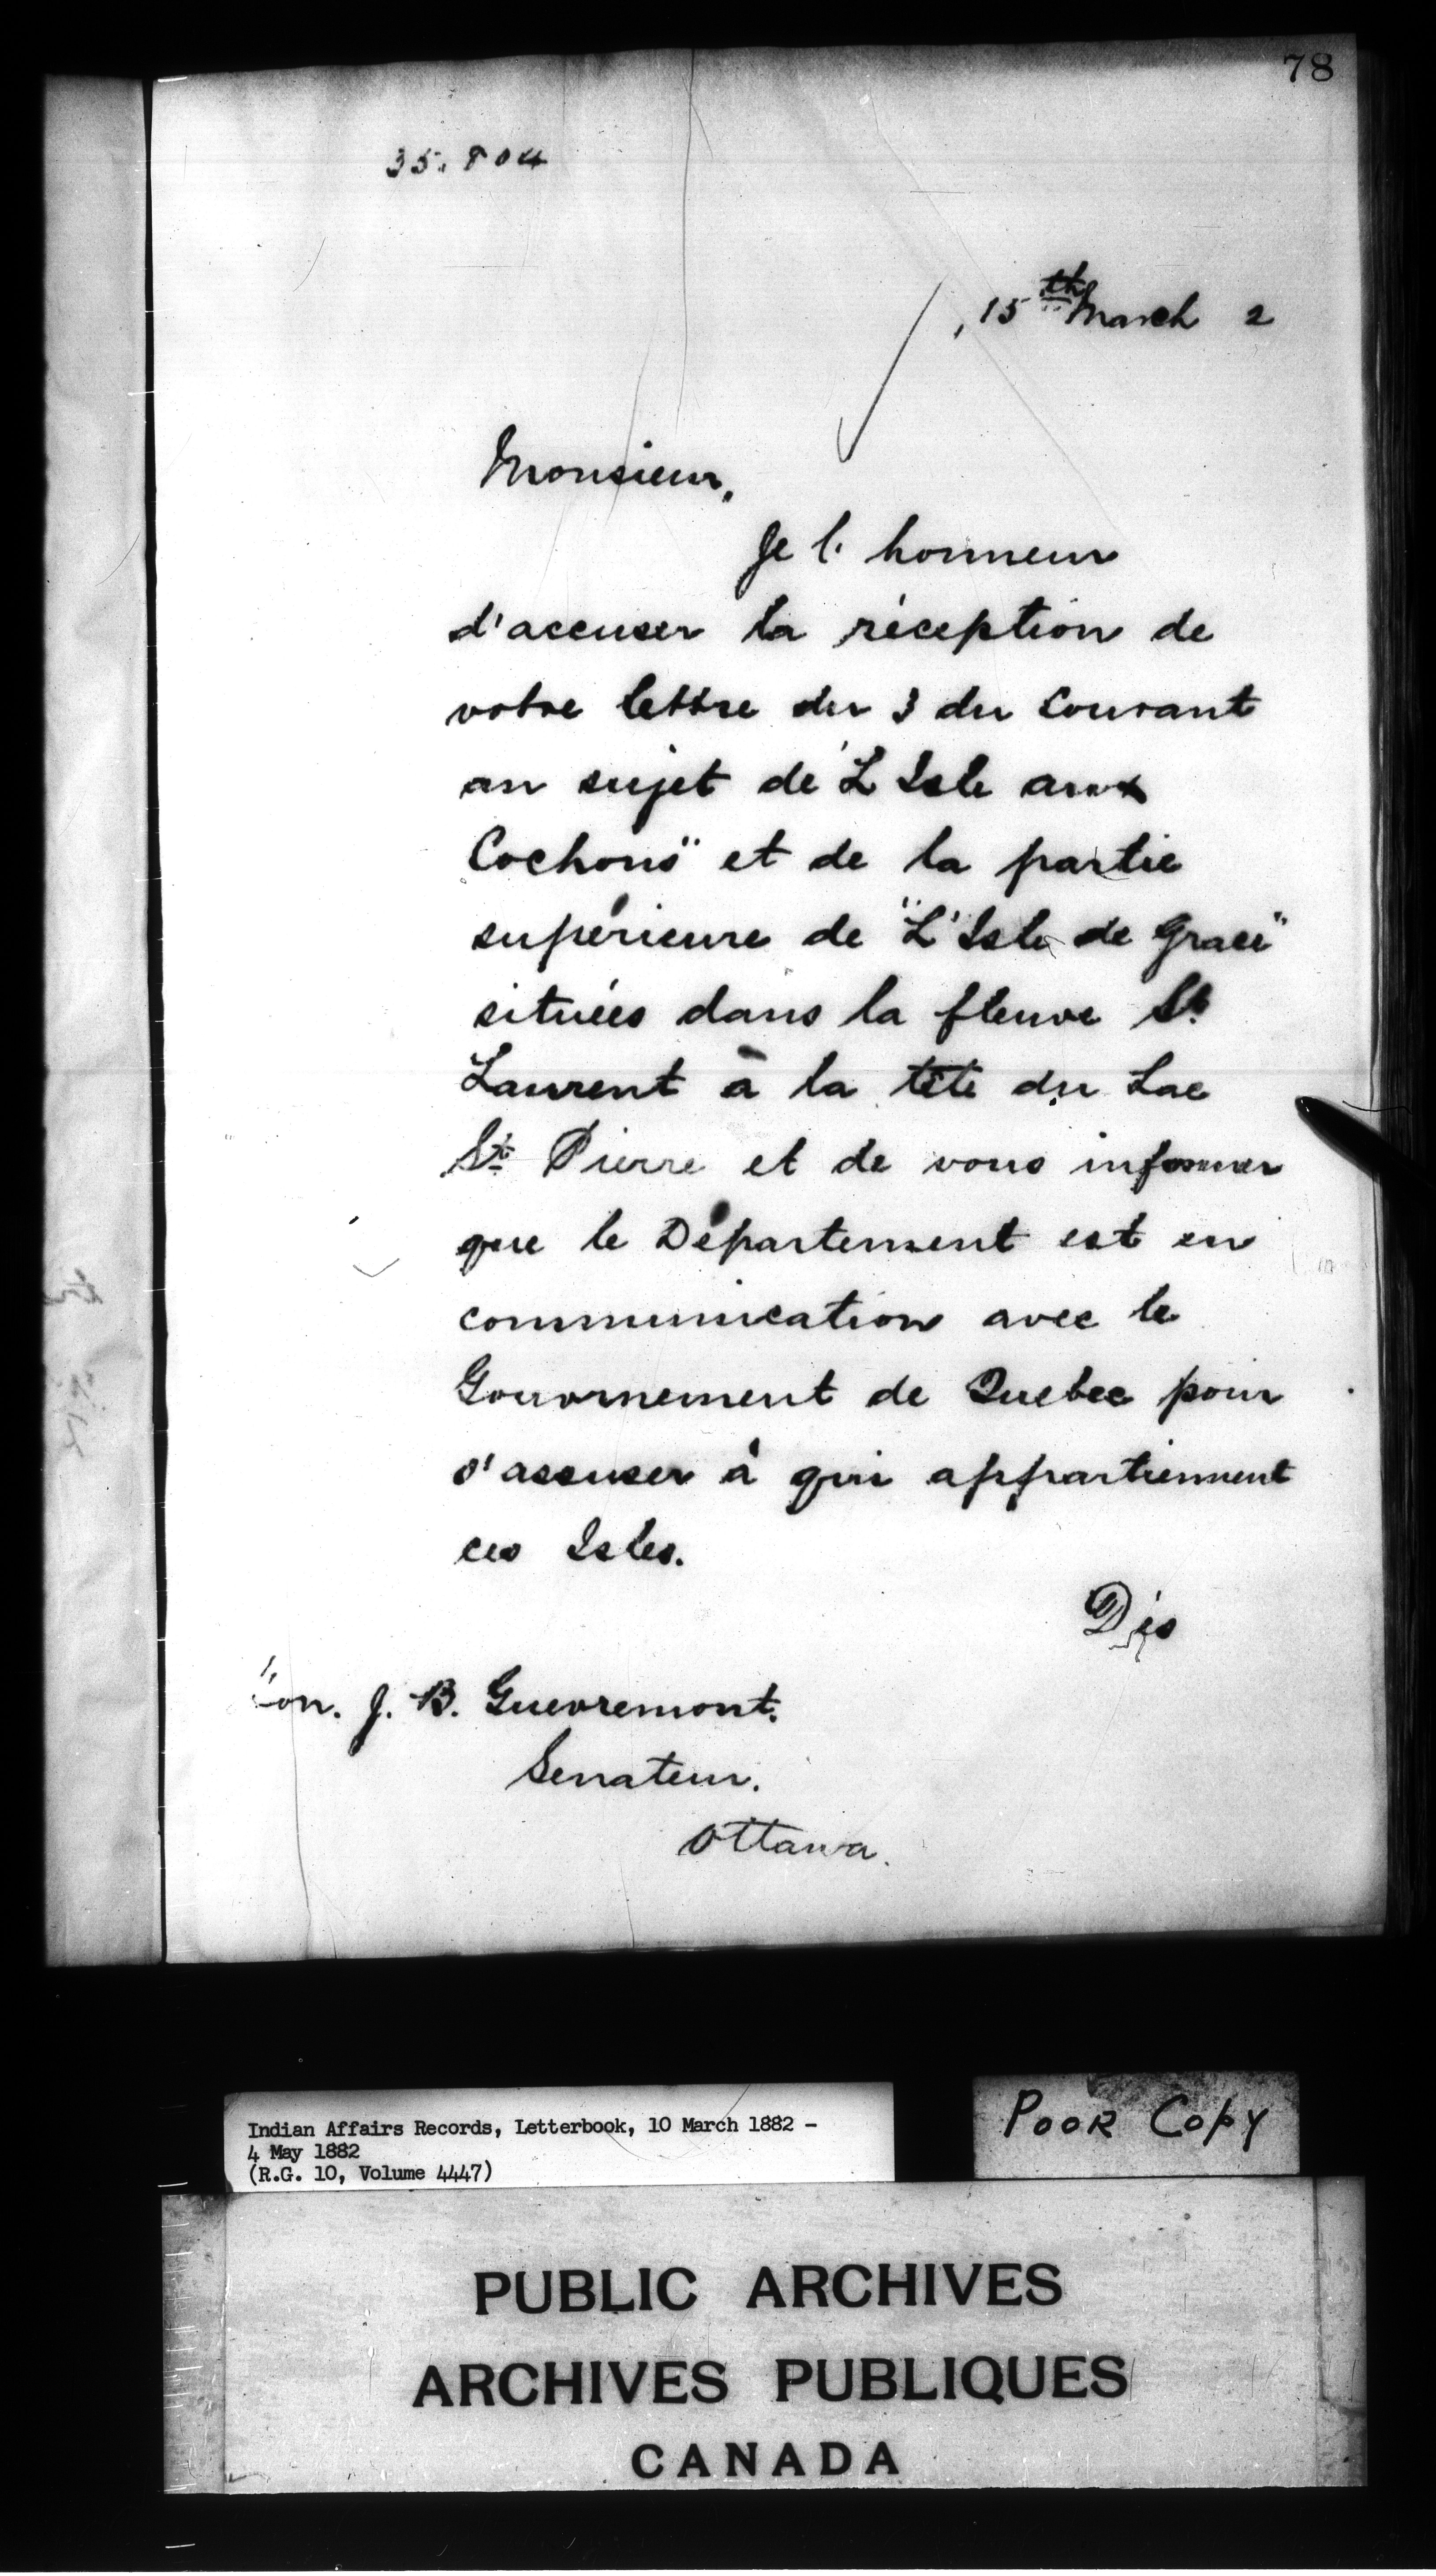 78
35.804
15th March 2
Monsieur,
Je l' honneur
d'accuser la réception de
votre lettre du 3 du Courant
au sujet de "L'Isle aux
Cochons" et de la partie
supérieure de "L'Isle de Grace"
situées dans la fleuve St.
Laurent à la tête du Lac
St. Pierre et de vous informer
que le Département est en
communication avec le
Gouvernement de Quebec pour
s'assuser à qui appartiennent
ces Isles.
Hon. J. B. Guevremont.
Senateur.
Ottawa.
Indian Affairs Records, Letterbook, 10 March 1882 -
4 May 1882
(R.G. 10, Volume 4447)
POOR COPY
PUBLIC ARCHIVES
ARCHIVES PUBLIQUES
CANADA